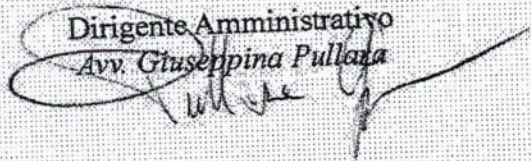 Dirigente Amministrativo
Avv. Giuseppina Pullara